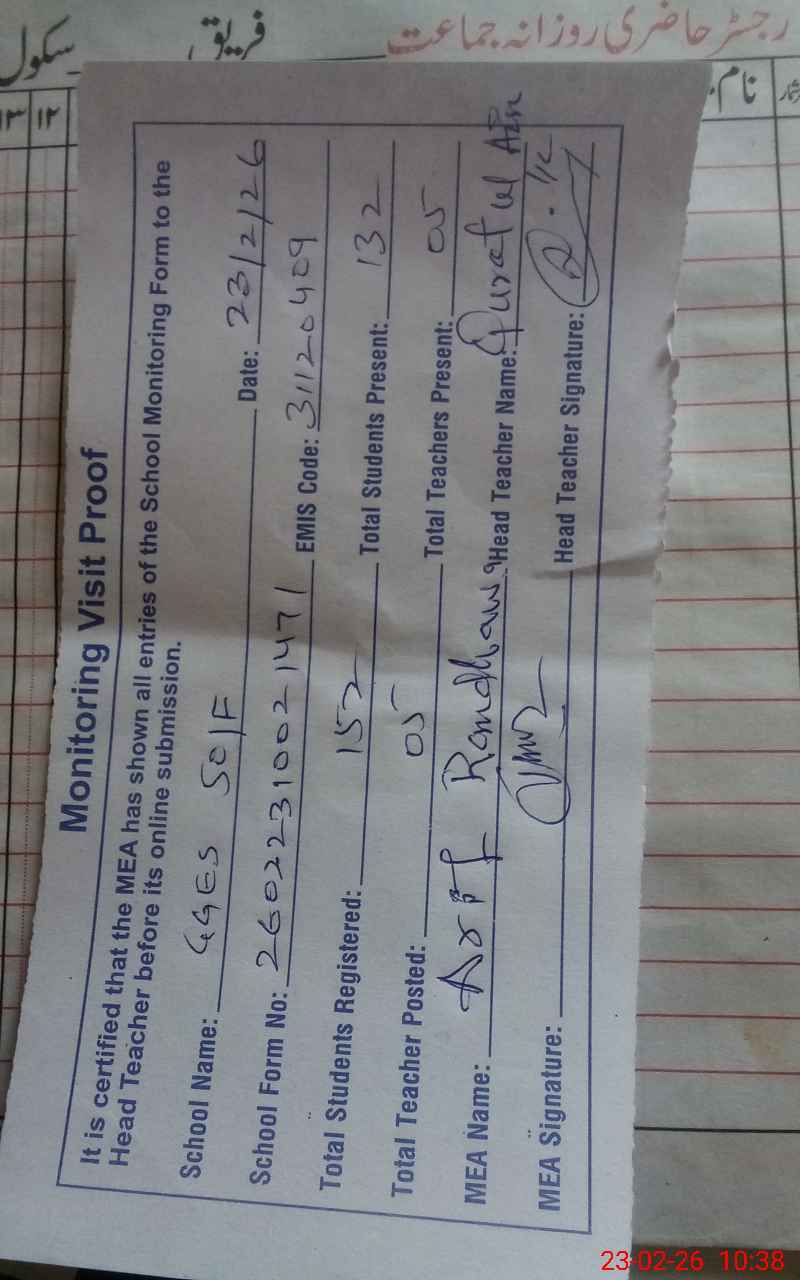 رجسٹر حاضری روزانہ جماعت فریق سکول
نام
۱۲ ۱۳
Monitoring Visit Proof
It is certified that the MEA has shown all entries of the School Monitoring Form to the
Head Teacher before its online submission.
School Name: GGES 50/F Date: 23/2/26
School Form No: 26022310021471 EMIS Code: 31120409
Total Students Registered: 152 Total Students Present: 132
Total Teacher Posted: 05 Total Teachers Present: 05
MEA Name: Arif Randhawa Head Teacher Name: Qurat ul Ain
MEA Signature: Head Teacher Signature:
23-02-26 10:38